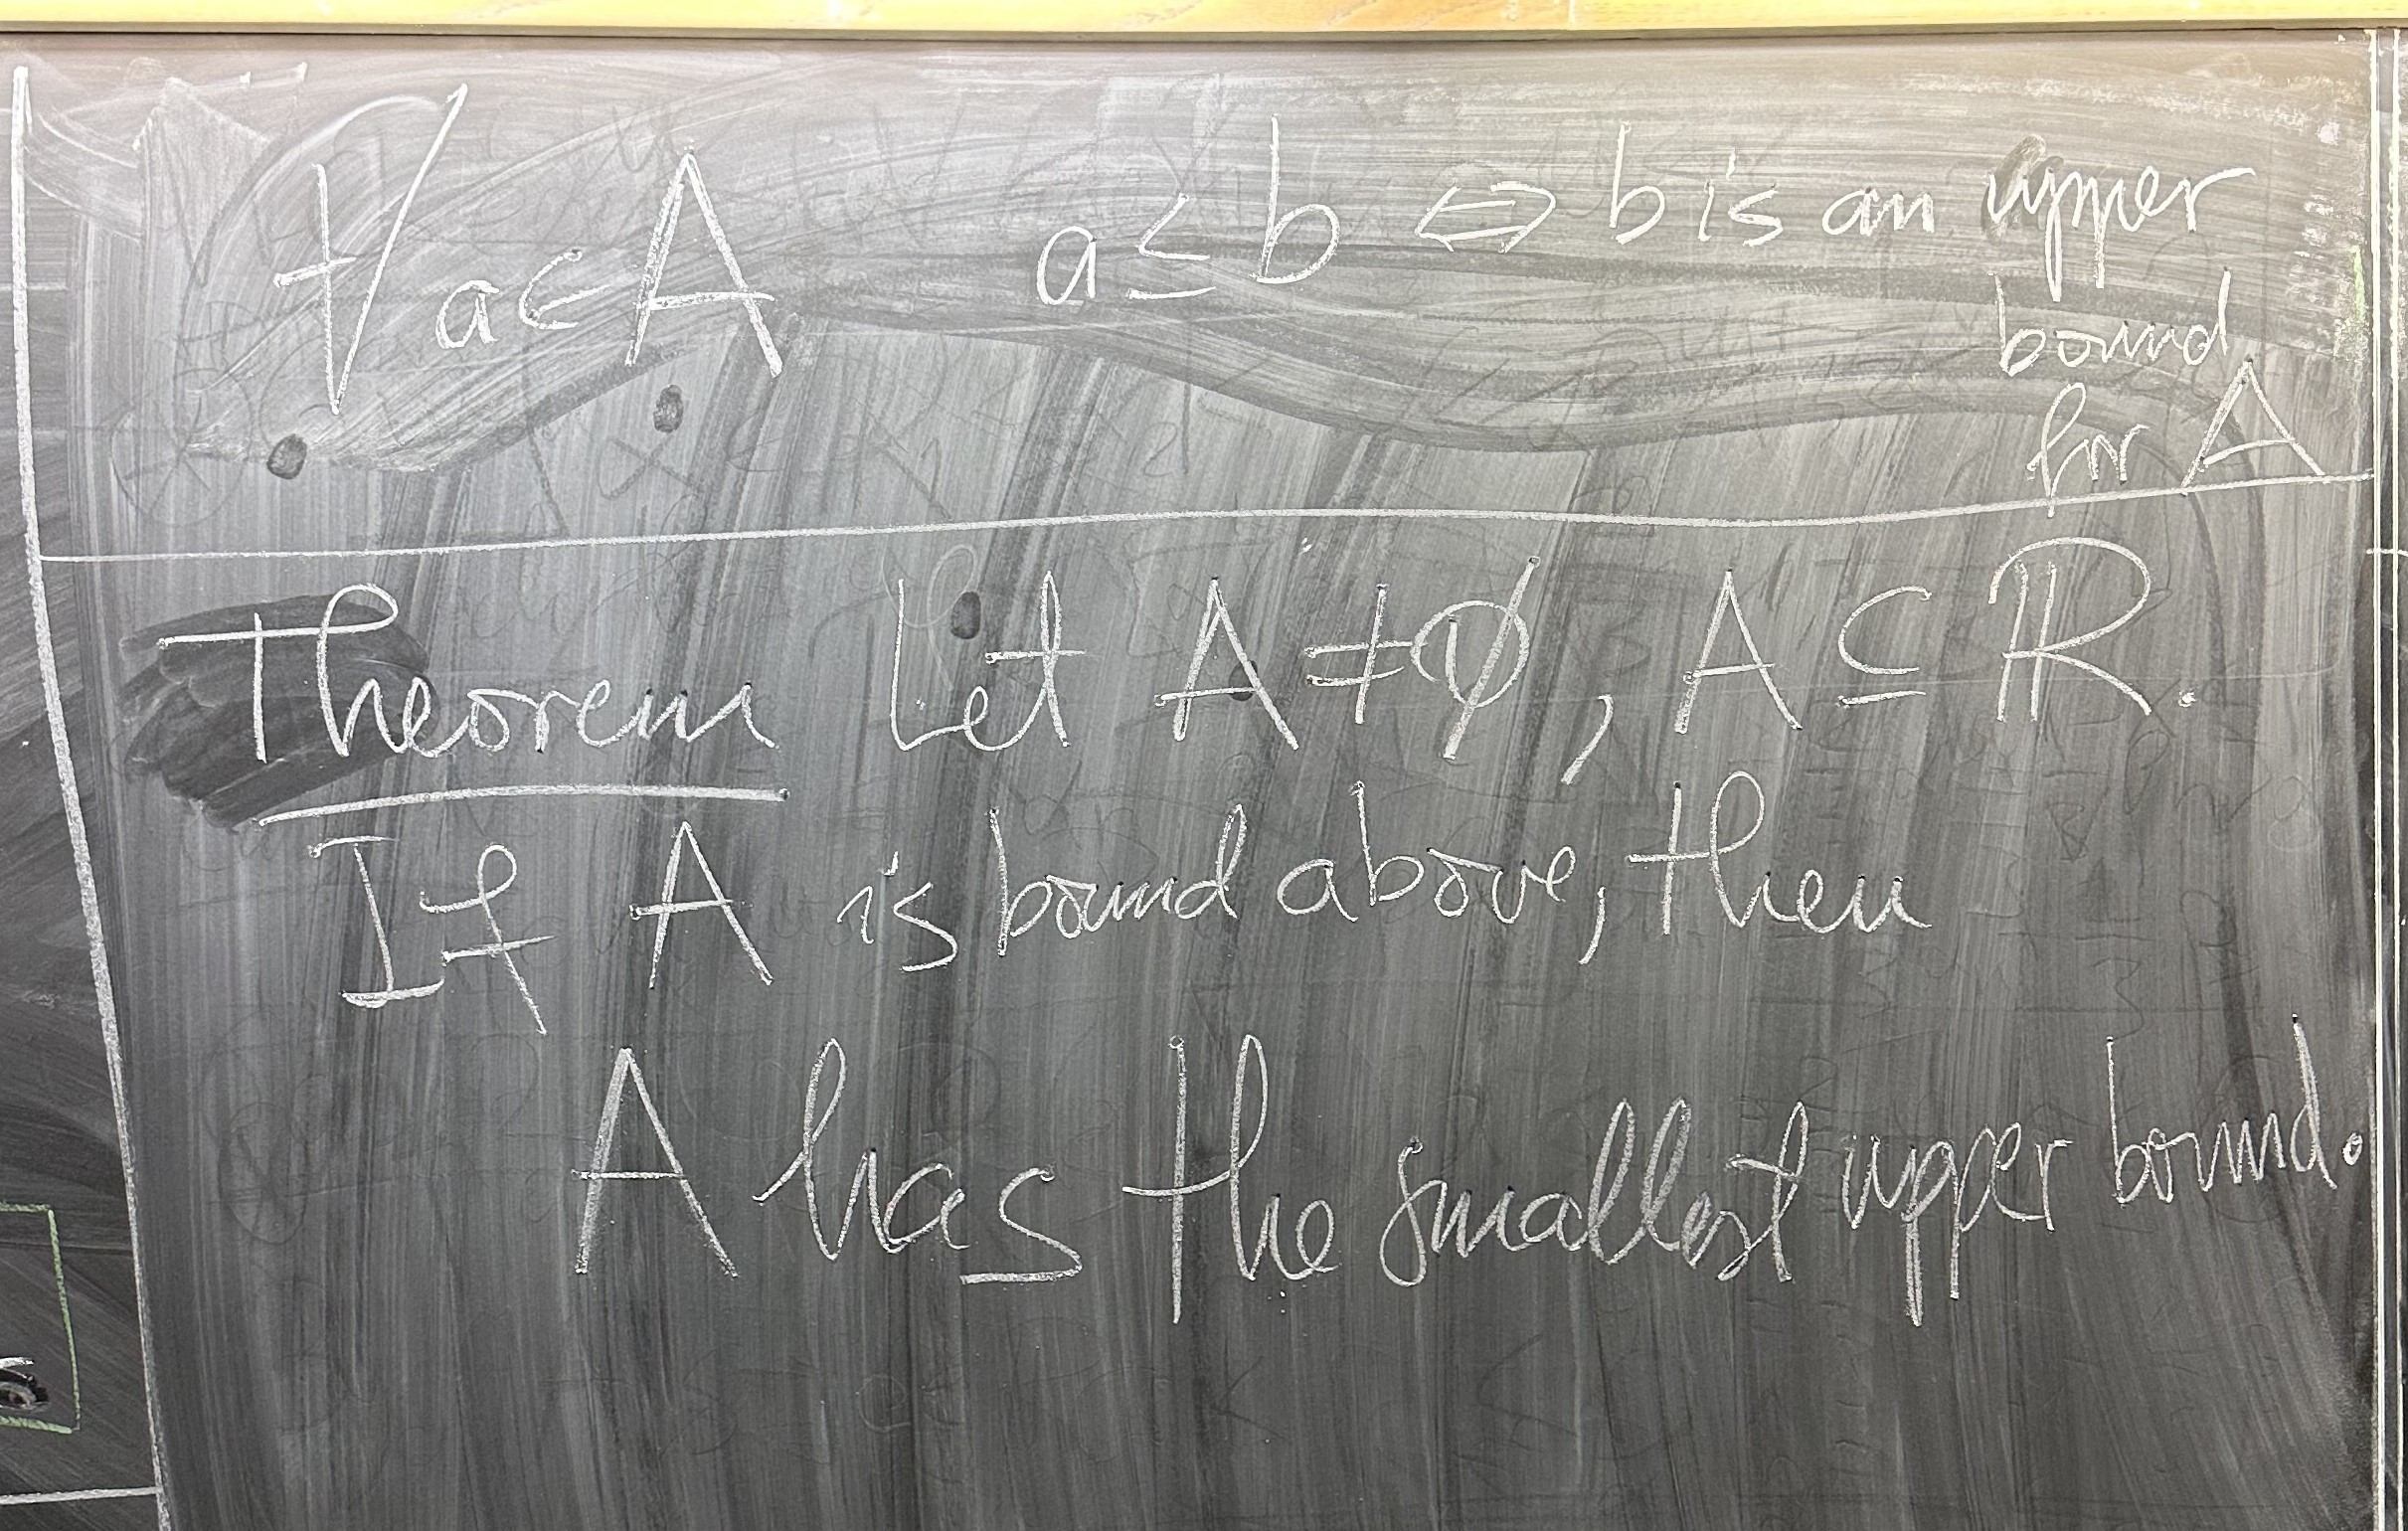 ∀a∈A a ≤ b ⇔ b is an upper
bound
for A
Theorem Let A ≠ ∅, A ⊆ ℝ.
If A is bound above, then
A has the smallest upper bound.